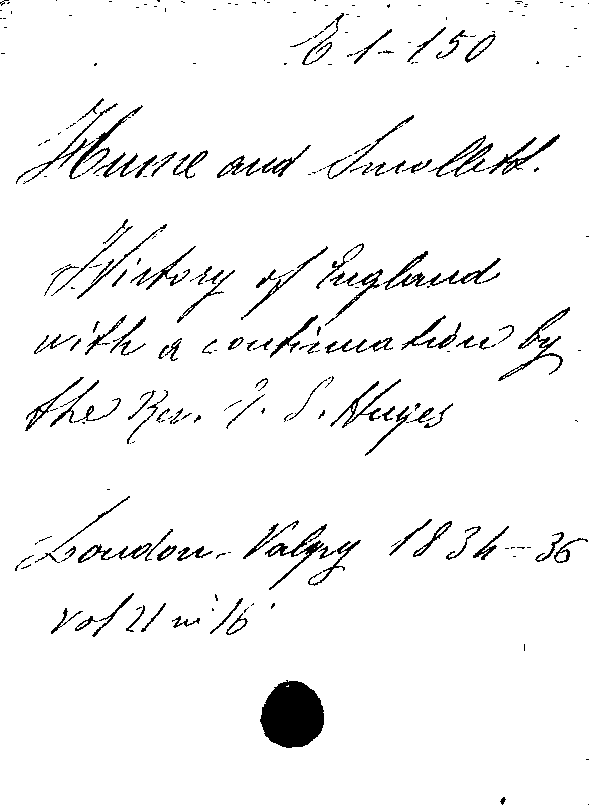 E 1-150
Hume and Smollett.
History of England
with a continuation by
the Rev. T. S. Huges
London - Valpy 1834-36
vol 21 in 16°